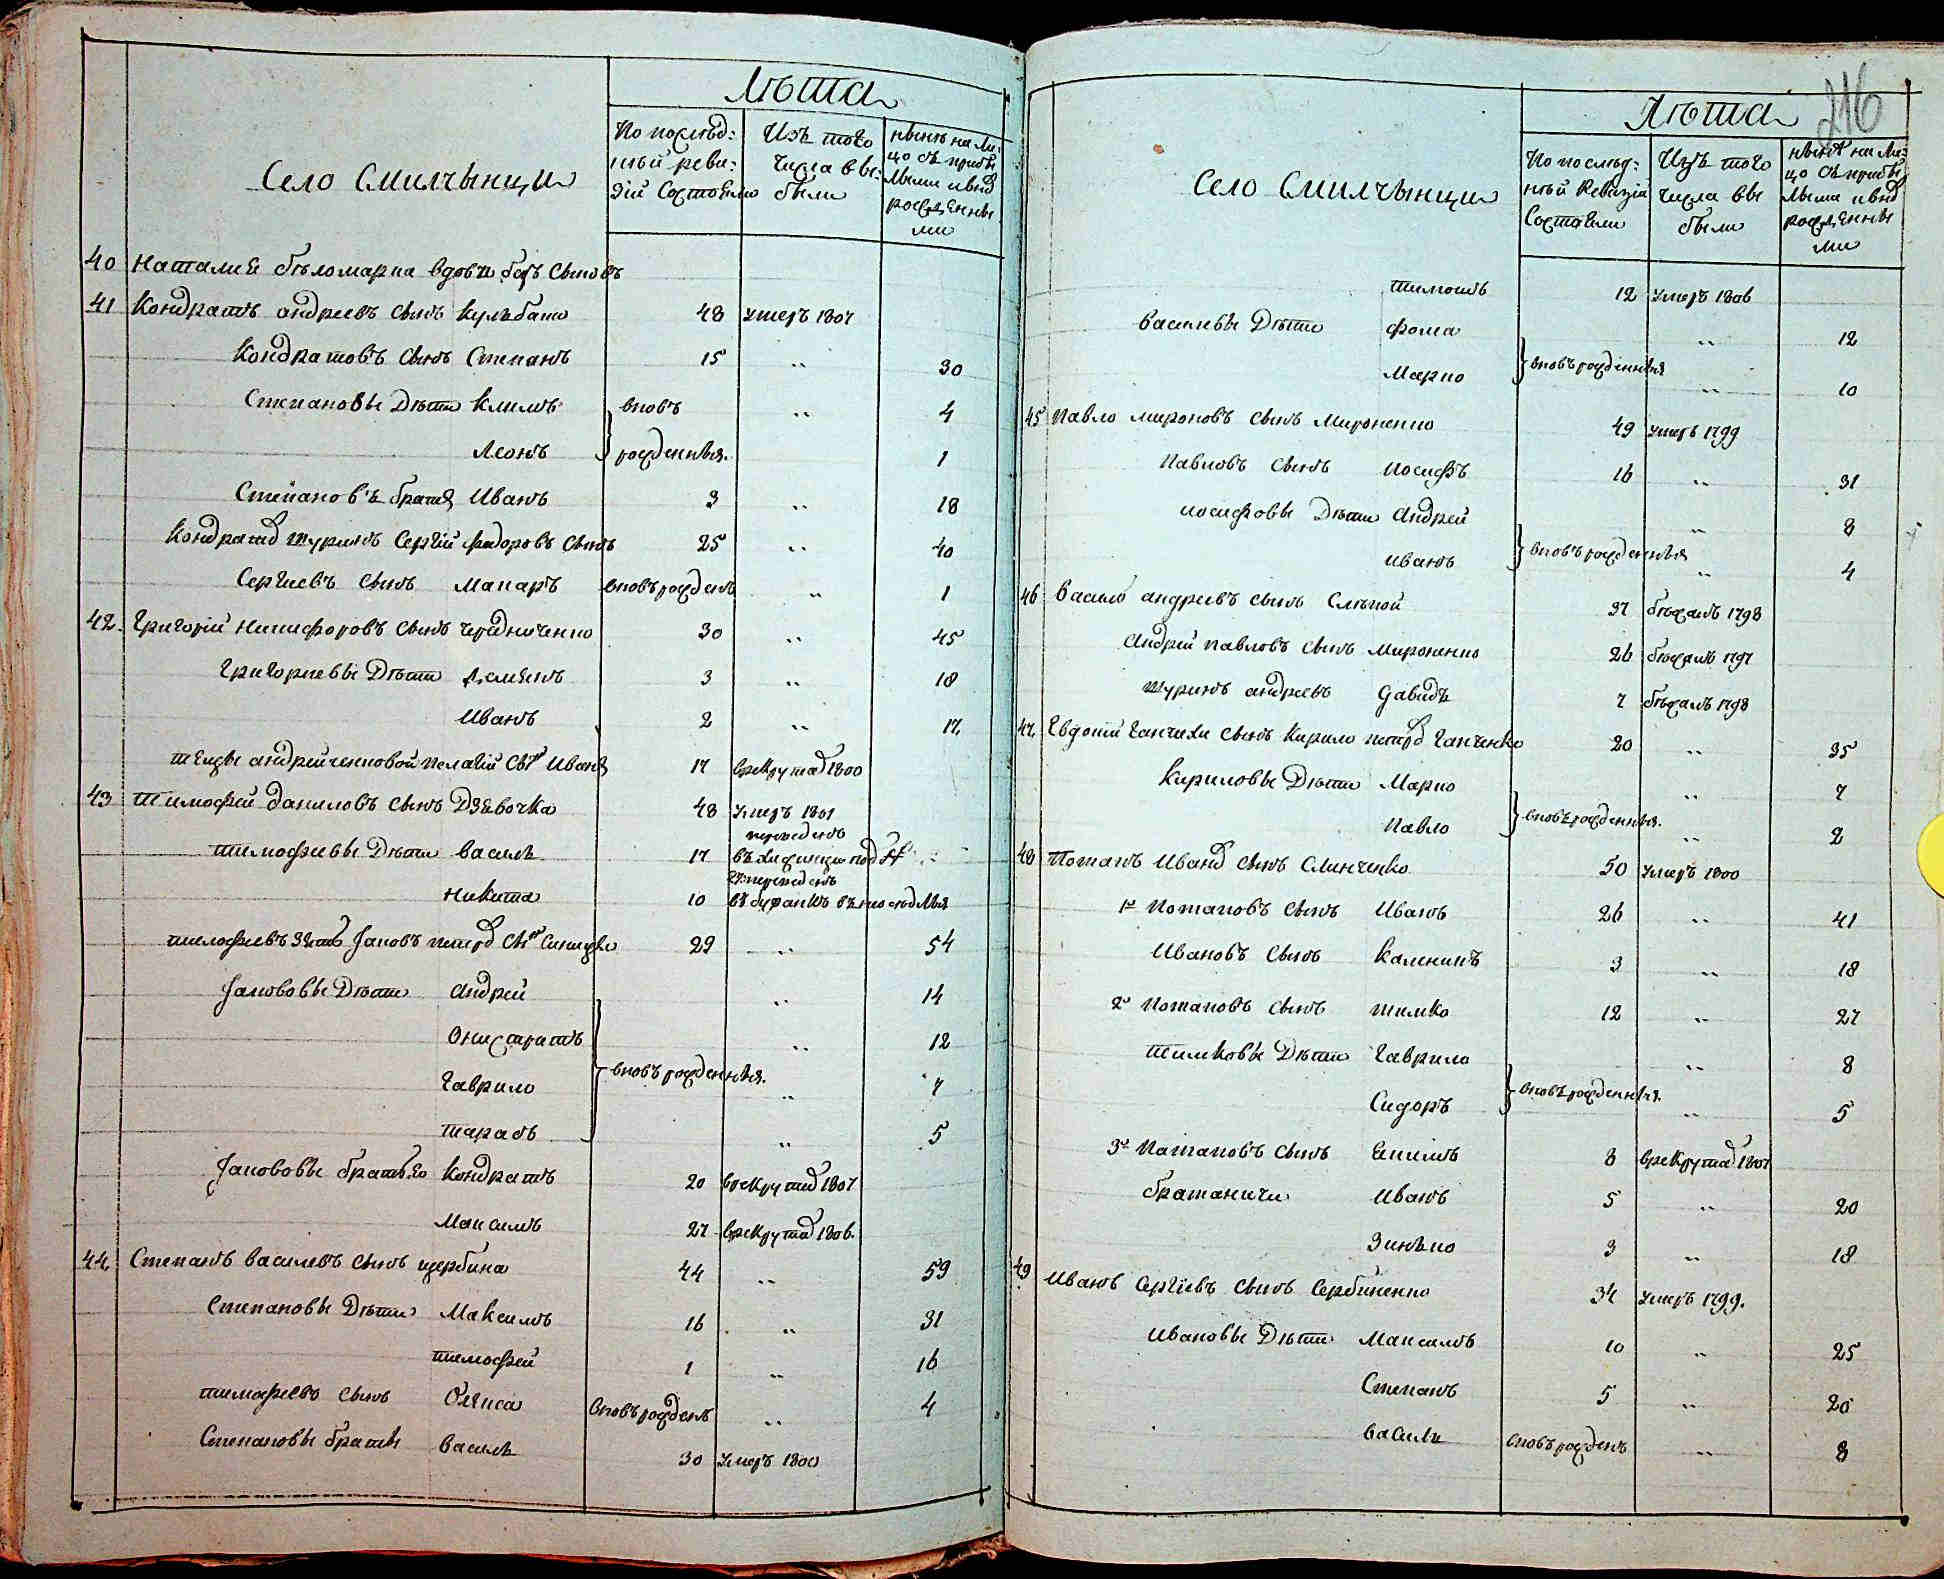 Лѣта
Село Смилчынци
По послѣд:
ньой реви:
зіи состояло
Изъ того
числа вы:
были
нынѣ на ли:
цо съ прибы
лыми и внов
рожденны
ми
40 Наталия бѣломарка вдова безъ сыновъ
41 Кондратъ андреевъ сынъ кульбака 48 умеръ 1807
Кондратовъ сынъ Степанъ 15 " 30
Степановы Дѣти климъ вновъ " 4
Леонъ рожденныя. 1
Степановъ братъ Иванъ 3 " 18
Кондрата шуринъ Сергій федоровъ сынъ 25 " 40
Сергиевъ сынъ Макаръ вновърожденъ " 1
42. Григорій Никифоровъ сынъ чередниченко 30 " 45
Григориевы Дѣти Семенъ 3 " 18
Иванъ 2 " 17.
тещы андрейченковой пелагіи сынъ Иванъ 17 врекрута 1800
43 Тимофей даниловъ сынъ Дзевочка 48 умеръ 1801
тимофеевы Дѣти василь 17 переведенъ въ под №
Никита 10 переведенъ
тимофеевъ зять Яковъ петров сынъ 29 " 54
Яковов
ы Дѣти андрей " 14
Онистратъ " 12
Гаврило вновърожденныя. " 7
тарасъ " 5
Якововы братья Кондратъ 20 врекрута 1807
Максимъ 27 врекрута 1806.
44 Степанъ васильевъ сынъ щербина 44 " 59
Степановы Дѣти Максимъ 16 " 31
тимофей 1 " 16
тимофеевъ сынъ Олекса вновърожденъ " 4
Степановы братья василь 30 умеръ 1800
216
Лѣта
Село Смилчынци
По послѣд:
ньой Ревизіи
состояло
Изъ того
числа вы
были
нынѣ на ли:
цо съ прибы
лыми и внов
рожденны
ми
тимошъ 12 умеръ 1806
василевы Дѣти фома " 12
Марко вновърожденныя " 10
45 павло мироновъ сынъ Мироненко 49 умеръ 1799
павловъ сынъ иосифъ 16 " 31
иосифовы Дѣти андрей " 8
иванъ вновърожденныя " 4
46 василь андреевъ сынъ Слѣпой 37 бѣжалъ 1798
андрей павловъ сынъ Мироненко 26 бѣжалъ 1797
шуринъ андреевъ давидъ 7 бѣжалъ 1798
47. Евдокіи Ганчихи сынъ Кирило петров Ганченко 20 " 35
Кириловы Дѣти Марко " 7
павло вновърожденныя. " 2
48 Потапъ Иванов сынъ Слинченко 50 умеръ 1800
1й потаповъ сынъ Иванъ 26 " 41
Ивановъ сынъ каленикъ 3 " 18
2й потаповъ сынъ тимко 12 " 27
тимковы Дѣти Гаврило " 8
Сидоръ вновърожденныя. " 5
3й патаповъ сынъ Екимъ 8 врекрута 1807
братаничи Иванъ 5 " 20
Зинько 3 " 18
49 Иванъ Сергіевъ сынъ Сербиненко 34 умеръ 1799.
Ивановы Дѣти Максимъ 10 " 25
Степанъ 5 " 20
василь вновърожденъ " 8